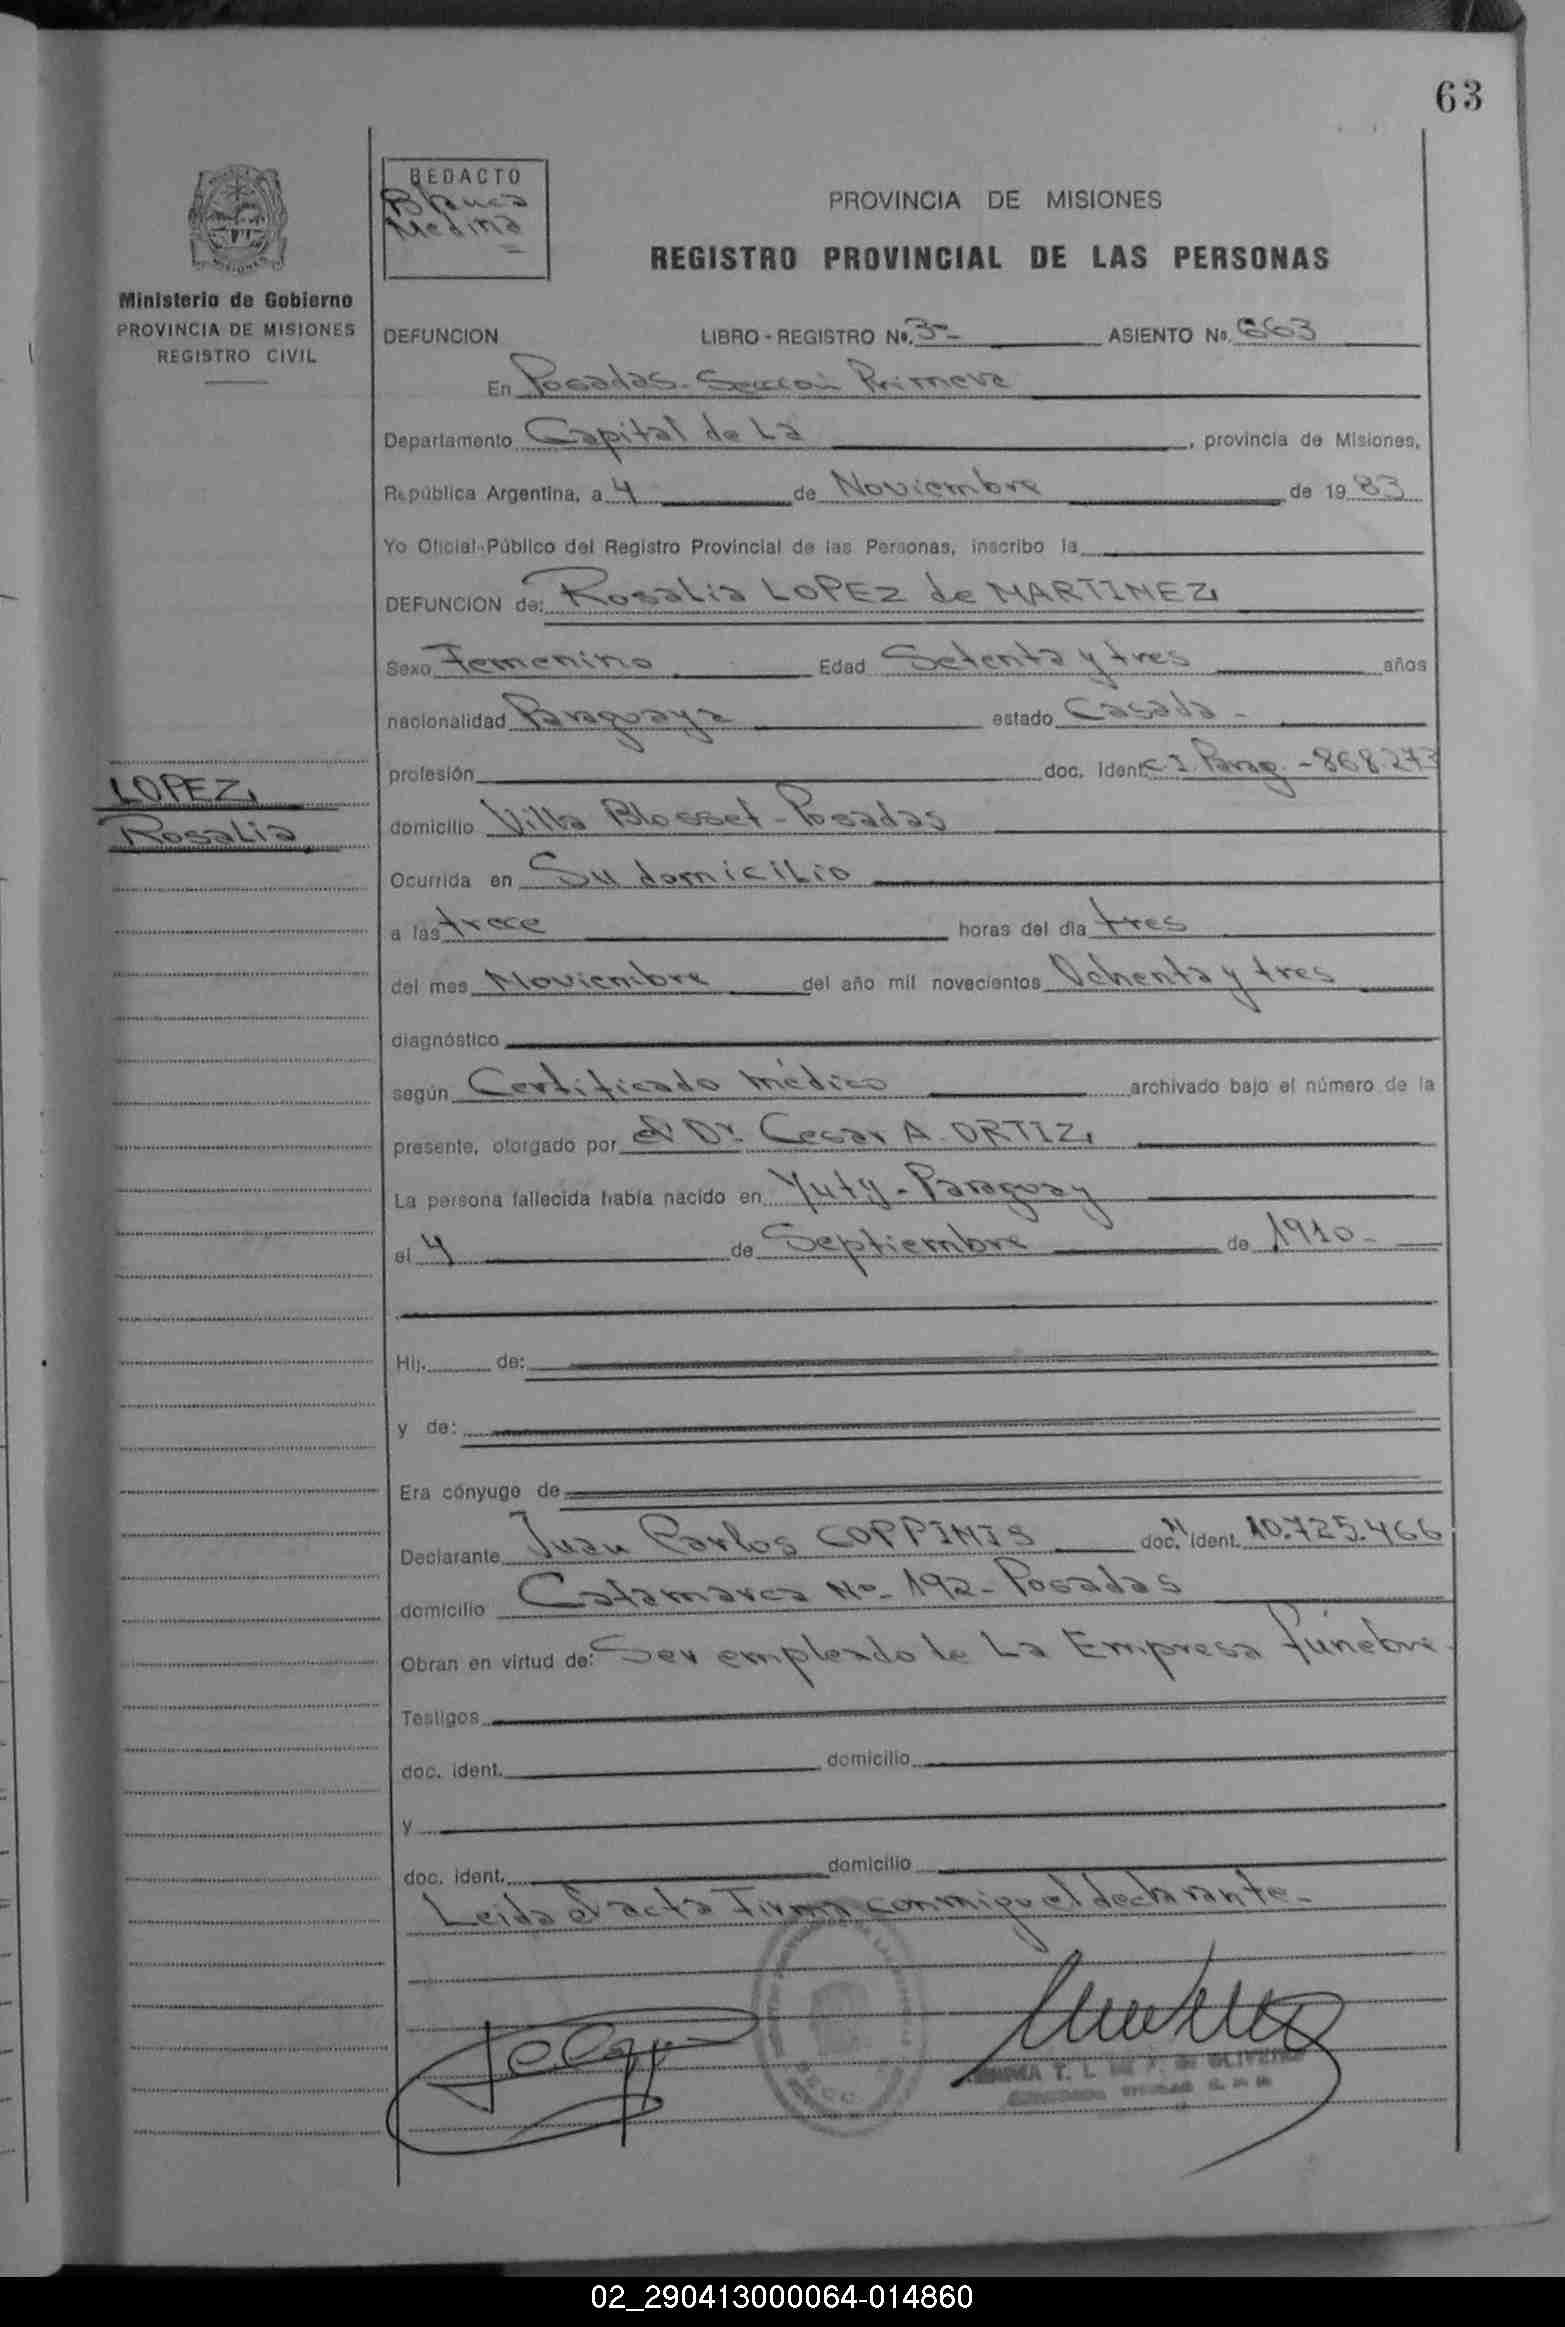 63
REDACTO
Blanca
Medina
PROVINCIA DE MISIONES
REGISTRO PROVINCIAL DE LAS PERSONAS
Ministerio de Gobierno
PROVINCIA DE MISIONES
REGISTRO CIVIL
DEFUNCION LIBRO - REGISTRO No. 3- ASIENTO No. 663
En Posadas - Sección Primera
Departamento Capital de La , provincia de Misiones,
República Argentina, a 4 de Noviembre de 19 83
Yo Oficial Público del Registro Provincial de las Personas, inscribo la
DEFUNCION de: Rosalia LOPEZ de MARTINEZ,
Sexo Femenino Edad Setenta y tres años
nacionalidad Paraguaya estado Casada -
profesión doc. ident. C I Parag. - 868.273
LOPEZ,
Rosalia
domicilio Villa Blosset - Posadas
Ocurrida en Su domicilio
a las trece horas del día tres
del mes Noviembre del año mil novecientos Ochenta y tres
diagnóstico
según Certificado médico archivado bajo el número de la
presente, otorgado por el Dr. Cesar A. ORTIZ,
La persona fallecida había nacido en Yuty - Paraguay
el 4 de Septiembre de 1910 -
Hij. de:
y de:
Era cónyuge de
Declarante Juan Carlos COPPINIS doc. ident. 10.725.466
domicilio Catamarca No - 192 - Posadas
Obran en virtud de: Ser empleado de La Empresa fúnebre.
Testigos
doc. ident. domicilio
y
doc. ident. domicilio
Leida el acta Firma conmigo el declarante -
02_290413000064-014860